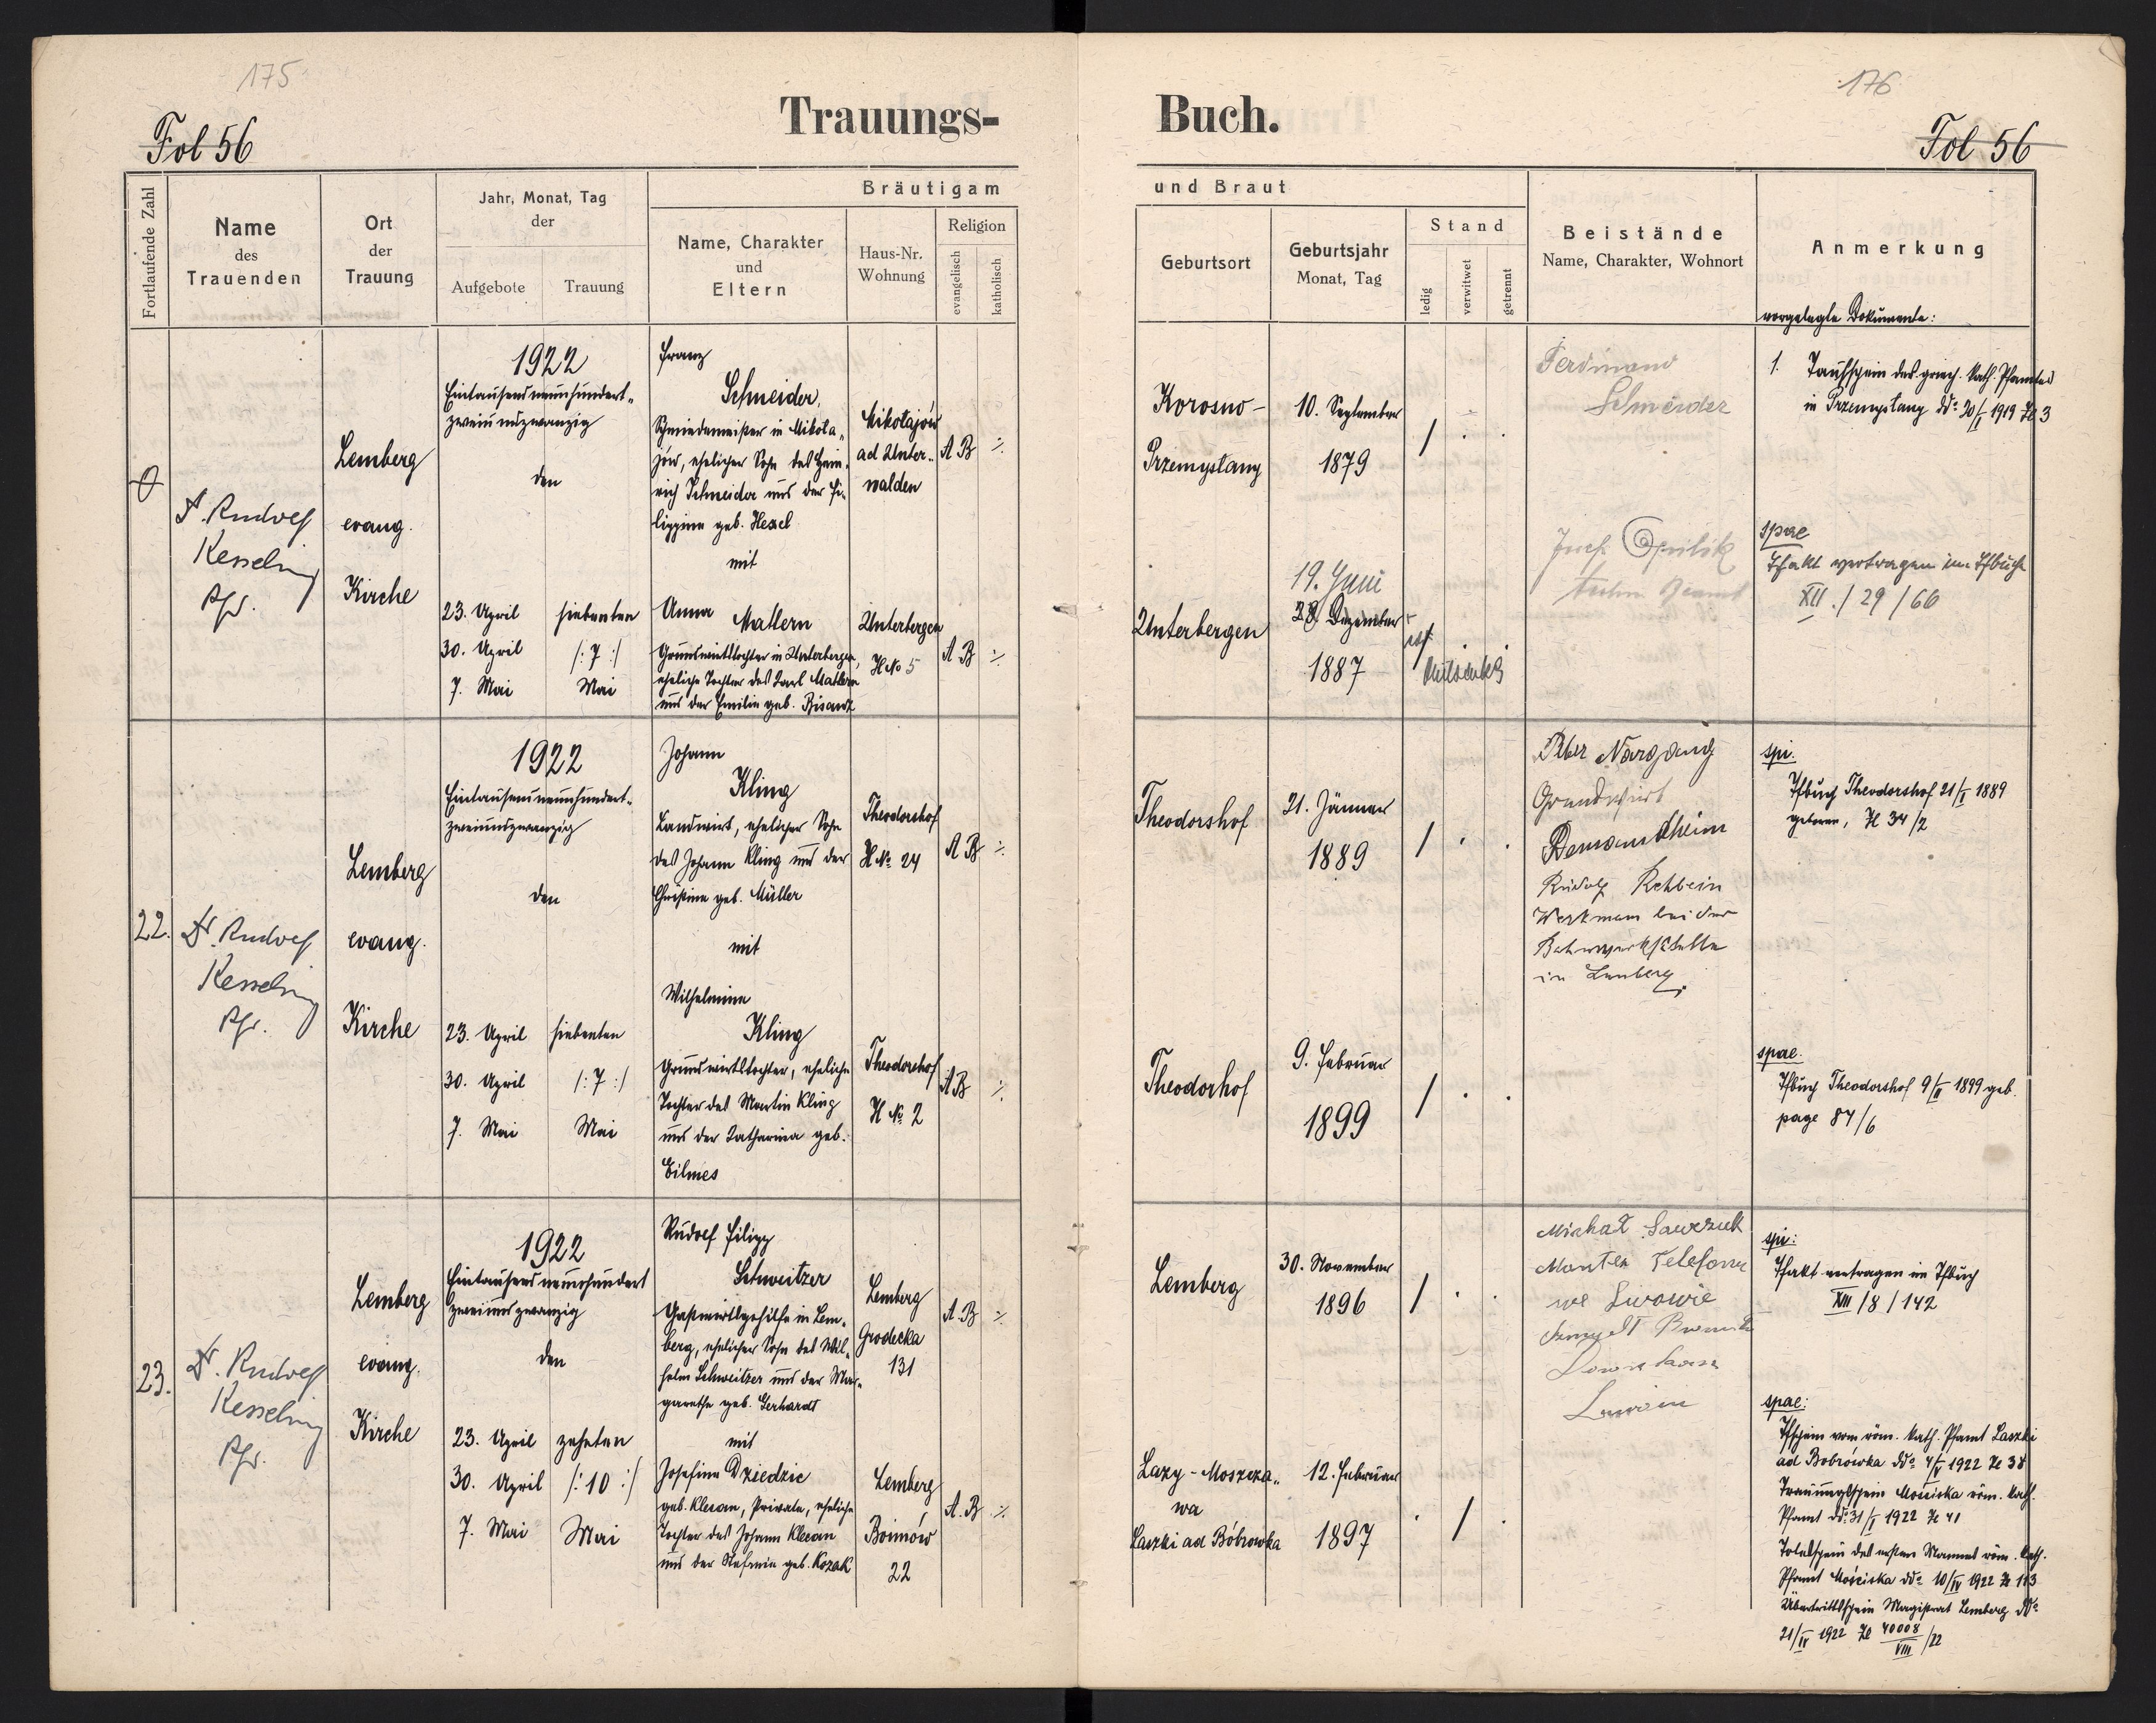 175
176
Fol 56
Trauungs-
Buch.
Fol 56
Fortlaufende Zahl
Name
des
Trauenden
Ort
der
Trauung
Jahr, Monat, Tag
der
Aufgebote
Trauung
Bräutigam
Name, Charakter
und
Eltern
Haus-Nr.
Wohnung
Religion
evangelisch
katholisch
und Braut
Geburtsort
Geburtsjahr
Monat, Tag
Stand
ledig
verwitwet
getrennt
Beistände
Name, Charakter, Wohnort
Anmerkung
vorgelegte Dokumente:
Dr. Rudolf
Kesselring
Pfr.
Lemberg
evang.
Kirche
1922
Eintausendneunhundert-
zweiundzwanzig
den
23. April
30. April
7. Mai
siebenten
/: 7 :/
Mai
Franz
Schneider,
Schmiedemeister in Mikoła-
jów, ehelicher Sohn des Hein-
rich Schneider und der Fi-
lippine geb. Hexel
mit
Anna Mattern
Grundwirtstochter in Unterbergen,
eheliche Tochter des Karl Mattern
und der Emilie geb. Bisanz
Mikołajów
ad Unter-
walden
A B ·/.
Unterbergen
H No 5
A B ·/.
Korosno-
Przemyslany
10. September
1879
/ . .
Unterbergen
19. Juni
28. Dezember
1887
Ferdinand
Schneider
Josef
1. Taufschein des griech. kath. Pfarramtes
in Przemyslany ddo 20/I 1919 Zl 3
spae
Tfakt vertragen im Tfbuch
XII. / 29 / 66
22.
Dr. Rudolf
Kesselring
Pfr.
Lemberg
evang.
Kirche
1922
Eintausendneunhundert-
zweiundzwanzig
den
23. April
30. April
7. Mai
siebenten
/: 7 :/
Mai
Johann
Kling
Landwirt, ehelicher Sohn
des Johann Kling und der
Christine geb. Müller
mit
Wilhelmine
Kling
Grundwirtstochter, eheliche
Tochter des Martin Kling
und der Katharina geb.
Eilmes
Theodorshof
H No. 24
A B ·/.
Theodorshof
H No. 2
A B ·/.
Theodorshof
21. Jänner
1889
/ . .
Theodorhof
9. Februar
1899
/ . .
Peter Nargang
Grundwirt
Rudolf Rehbein
Werkmann bei der
Bahnwerkstelle
in Lemberg
spi.
Tfbuch Theodorshof 21/I 1889
geboren, Zl 34/2
spae.
Tfbuch Theodorshof 9/II 1899 geb.
page 84/6
23.
Dr. Rudolf
Kesselring
Pfr.
Lemberg
evang.
Kirche
1922
Eintausendneunhundert
zweiundzwanzig
den
23. April
30. April
7. Mai
zehnten
/: 10 :/
Mai
Rudolf Filipp
Schweitzer
Gastwirtsgehilfe in Lem-
berg, ehelicher Sohn des Wil-
helm Schweitzer und der Mar-
garethe geb. Gerhardt
mit
Josefine Dziedzic
geb. Kleean, Private, eheliche
Tochter des Johann Kleean
und der Stefanie geb. Kozak
Lemberg
Grodecka
131
A. B ·/.
Lemberg
Boimów
22
A. B ·/.
Lemberg
30. November
1896
/ . .
Lazy-Moszcza-
wa
Laszki ad Bóbrowka
12. Februar
1897
. / .
Michał
Monter Telefonu
we Lwowie
spi:
Tfakt vertragen im Tfbuch
XIII / 8 / 142
spae:
Tfschein vom röm. kath. Pfamt Laszki
ad Bobrówka ddo 4/V 1922 Zl 38
Trauungsschein Mościska röm. kath.
Pfamt ddo 31/I 1922 Zl 41
Totelschein des ersten Mannes röm. kath.
Pfamt Mościska ddo 10/IV 1922 Zl 113
Übertrittsschein Magistrat Lemberg ddo
21/IV 1922 Zl 40008/VIII /22